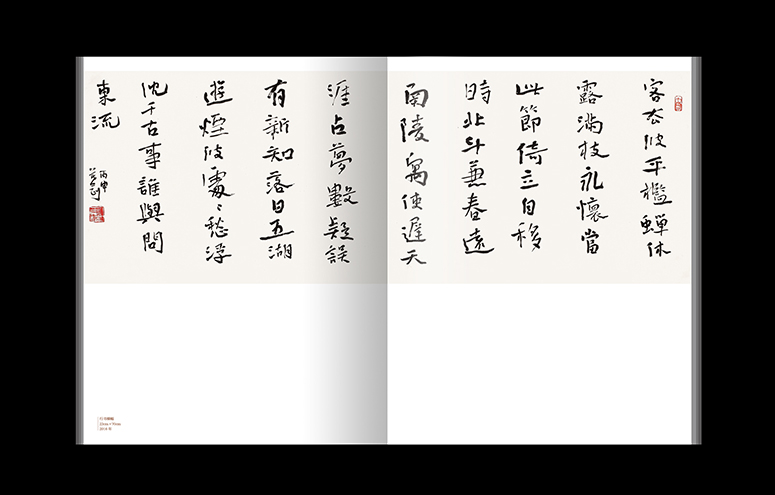 客去波平檻蟬休
露滿枝永懷當
此節倚立自移
時北斗兼春遠
南陵寓使遲天
涯占夢數疑誤
有新知落日五湖
遊煙波處〻愁浮
沈千古事誰與問
東流
丙申